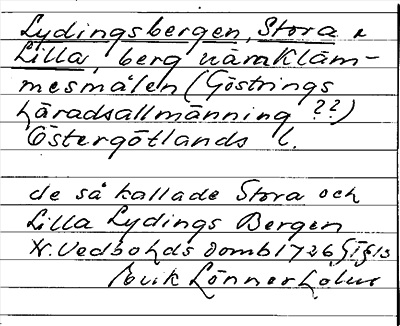 Lydingsbergen, Stora &
Lilla, berg nära Kläm-
mesmålen (Göstrings
häradsallmänning ??)
Östergötlands l.
de så kallade Stora och
Lilla Lydings Bergen
N. Vedbo hds domb 1726
Lönnerholm